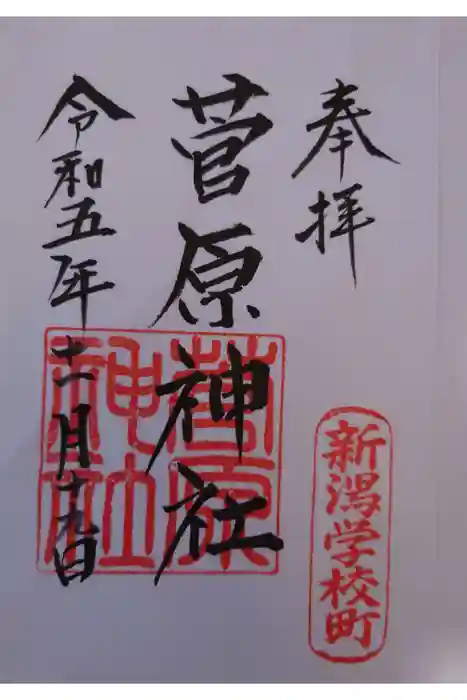 奉拝
新潟学校町
菅原神社
菅原神社
令和五年十一月十九日